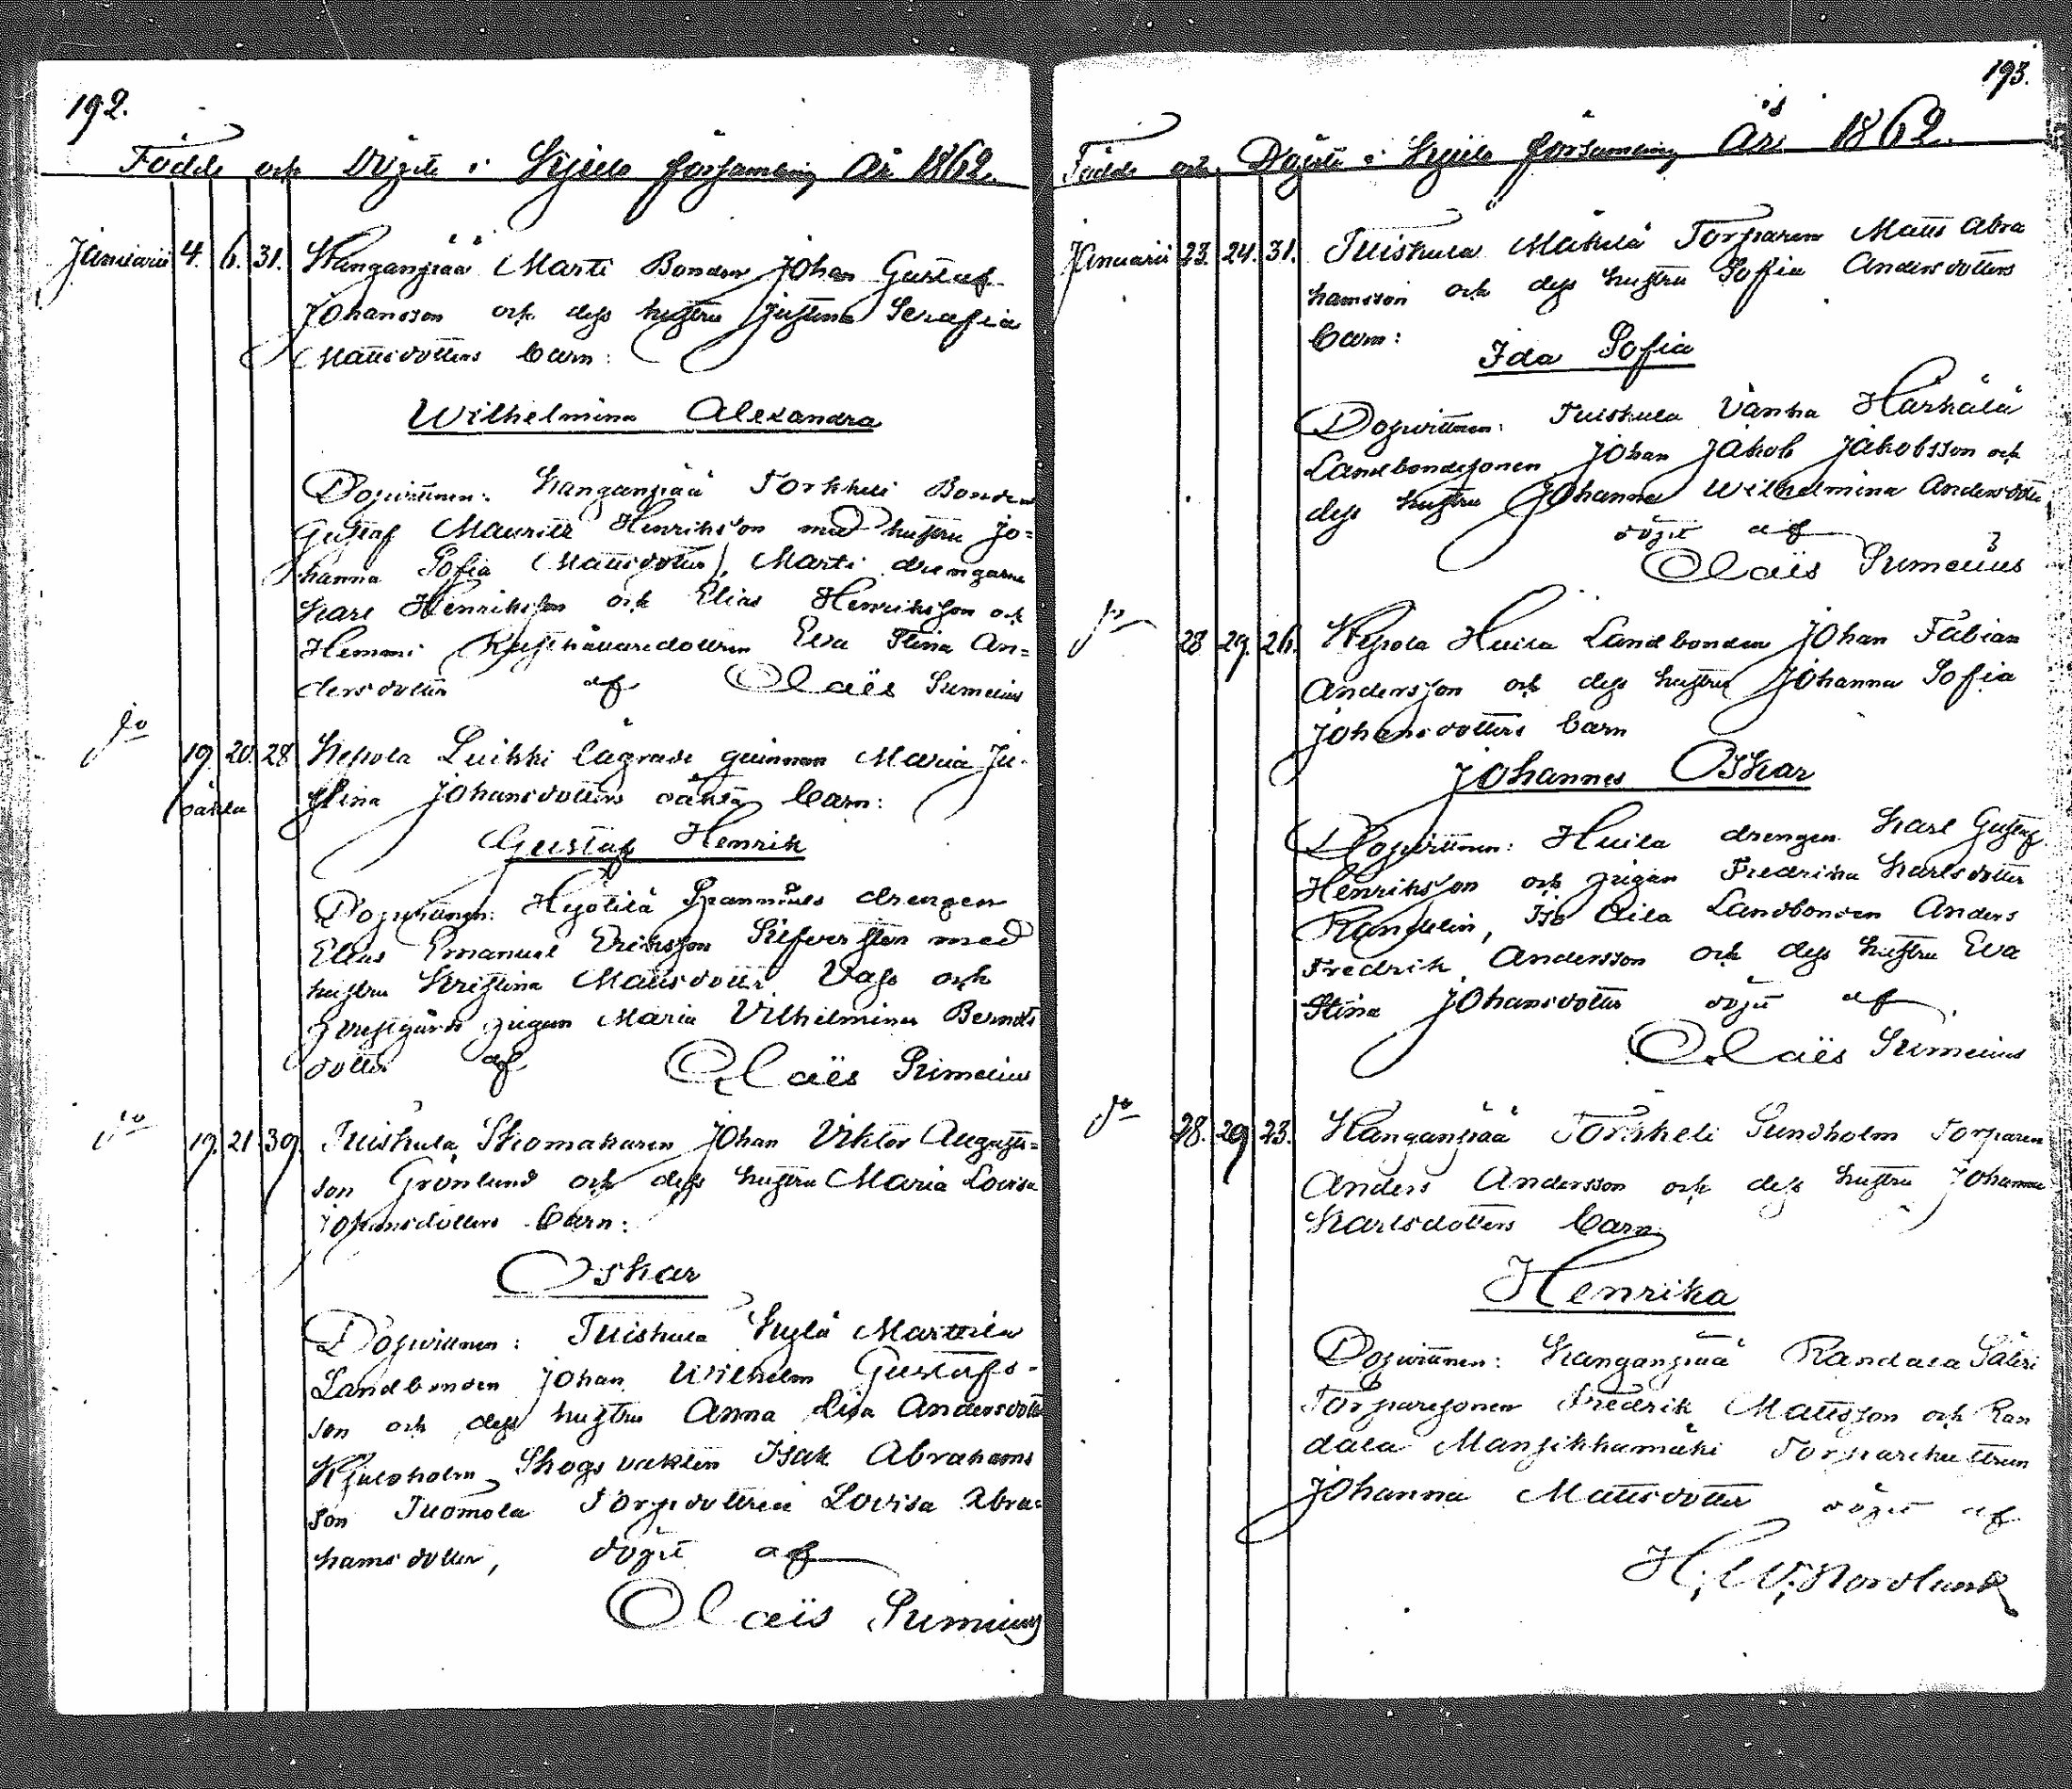 192.
Födde och Döpte i Kjulo församling År 1862.
Januarii 4. 6. 31. Kanganpää Martti Bonden Johan Gustaf
Johansson och dess hustru Justina Serafia
Mattsdotters barn:
Wilhelmina Alexandra
Dopvittnen: Kanganpää Torkkeli Bonden
Gustaf Mauritz Henriksson med hustru Jo=
hanna Sofia Mattsdotter, Martti drengarne
Karl Henriksson och Elias Henriksson och
Hemmi Eva Stina An=
dersdotter af Claës Rimelius
do 19. 20. 28 Kepola Luikki lägrade quinnan Maria Ju-
oäkta stina Johansdotters oäkta barn:
Gustaf Henrik
Dopvittnen: drengen
Elias Emanuel Eriksson Silfversten med
hustru Kristina Mattsdotter och
pigan Maria Vilhelmina Berndts
dotter af Claës Rimelius
do 19. 21 39. Tuiskula Skomakaren Johan Viktor Augusts=
son Grönlund och dess hustru Maria Lovisa
Johansdotters barn:
Oskar
Dopvittnen: Tuiskula Kylä Marttila
Landbonden Johan Wilhelm Gustafs-
son och dess hustru Anna Lisa Andersdotter
Kjuloholm Skogsvakten Isak Abrahams
son Tuomola Torpdottren Lovisa Abra=
hamsdotter, döpt af
Claës Rimelius
193.
Födde och Döpte i Kjulo församling År 1862.
Januarii 23. 24. 31. Tuiskula Mäkelä Torparen Matts Abra
hamsson och dess hustru Sofia Andersdotters
barn:
Ida Sofia
Dopvittnen: Tuiskula Vanha Härkälä
Landbondesonen Johan Jakob Jakobsson och
dess hustru Johanna Wilhelmina Andersdotter
döpt af
Claës Rimelius
do 28 29. 26. Kepola Huila Landbonden Johan Fabian
Andersson och dess hustru Johanna Sofia
Johansdotters barn
Johannes Oskar
Dopvittnen: Huila drengen Karl Gustaf
Henriksson och pigan Fredrika Karlsdotter
Randelin, Iso Eila Landbonden Anders
Fredrik Andersson och dess hustru Eva
Stina Johansdotter döpt af
Claës Rimelius
do 28. 29 23. Kanganpää Torkkeli Sundholm Torparen
Anders Andersson och dess hustru Johanna
Karlsdotters barn
Henrika
Dopvittnen: Kanganpää Randala Säteri
Torparesonen Fredrik Mattsson och Ran
dala Mansikkamäki Torparehustrun
Johanna Mattsdotter döpt af
H. W. Nordlund